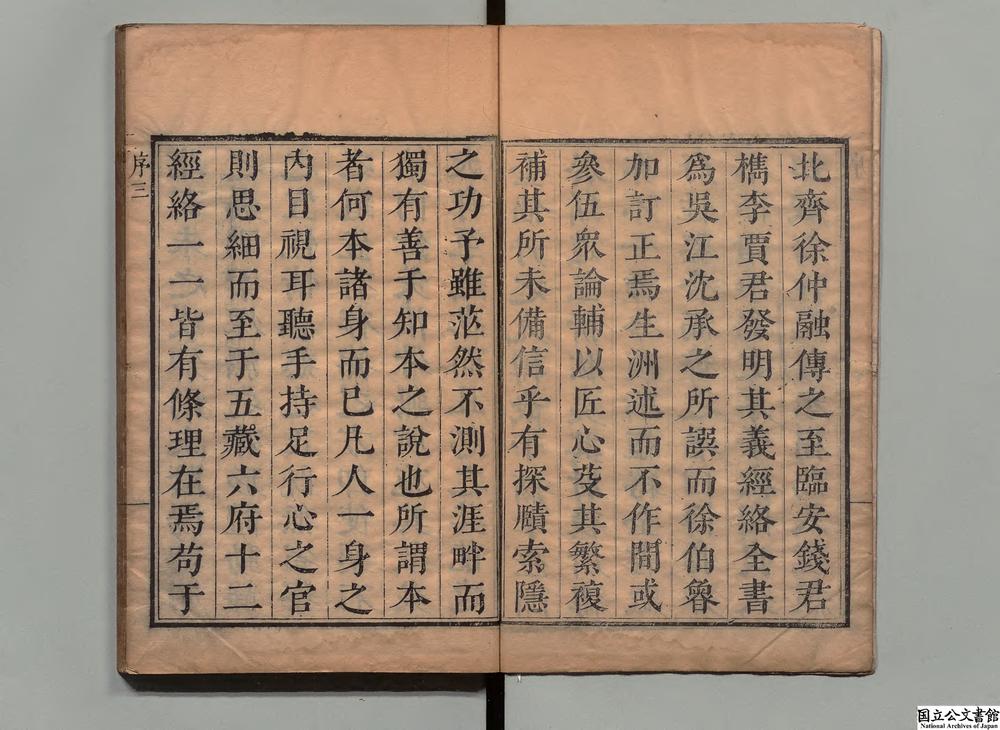 北齊徐仲融傳之至臨安錢君
檇李賈君發明其義經絡全書
爲吳江沈承之所譔而徐伯魯
加訂正焉生洲述而不作間或
參伍眾論輔以匠心芟其繁複
補其所未備信乎有探賾索隱
之功予雖茫然不測其涯畔而
獨有善于知本之說也所謂本
者何本諸身而已凡人一身之
內目視耳聽手持足行心之官
則思細而至于五藏六府十二
經絡一一皆有條理在焉苟于
序三
国立公文書館
National Archives of Japan